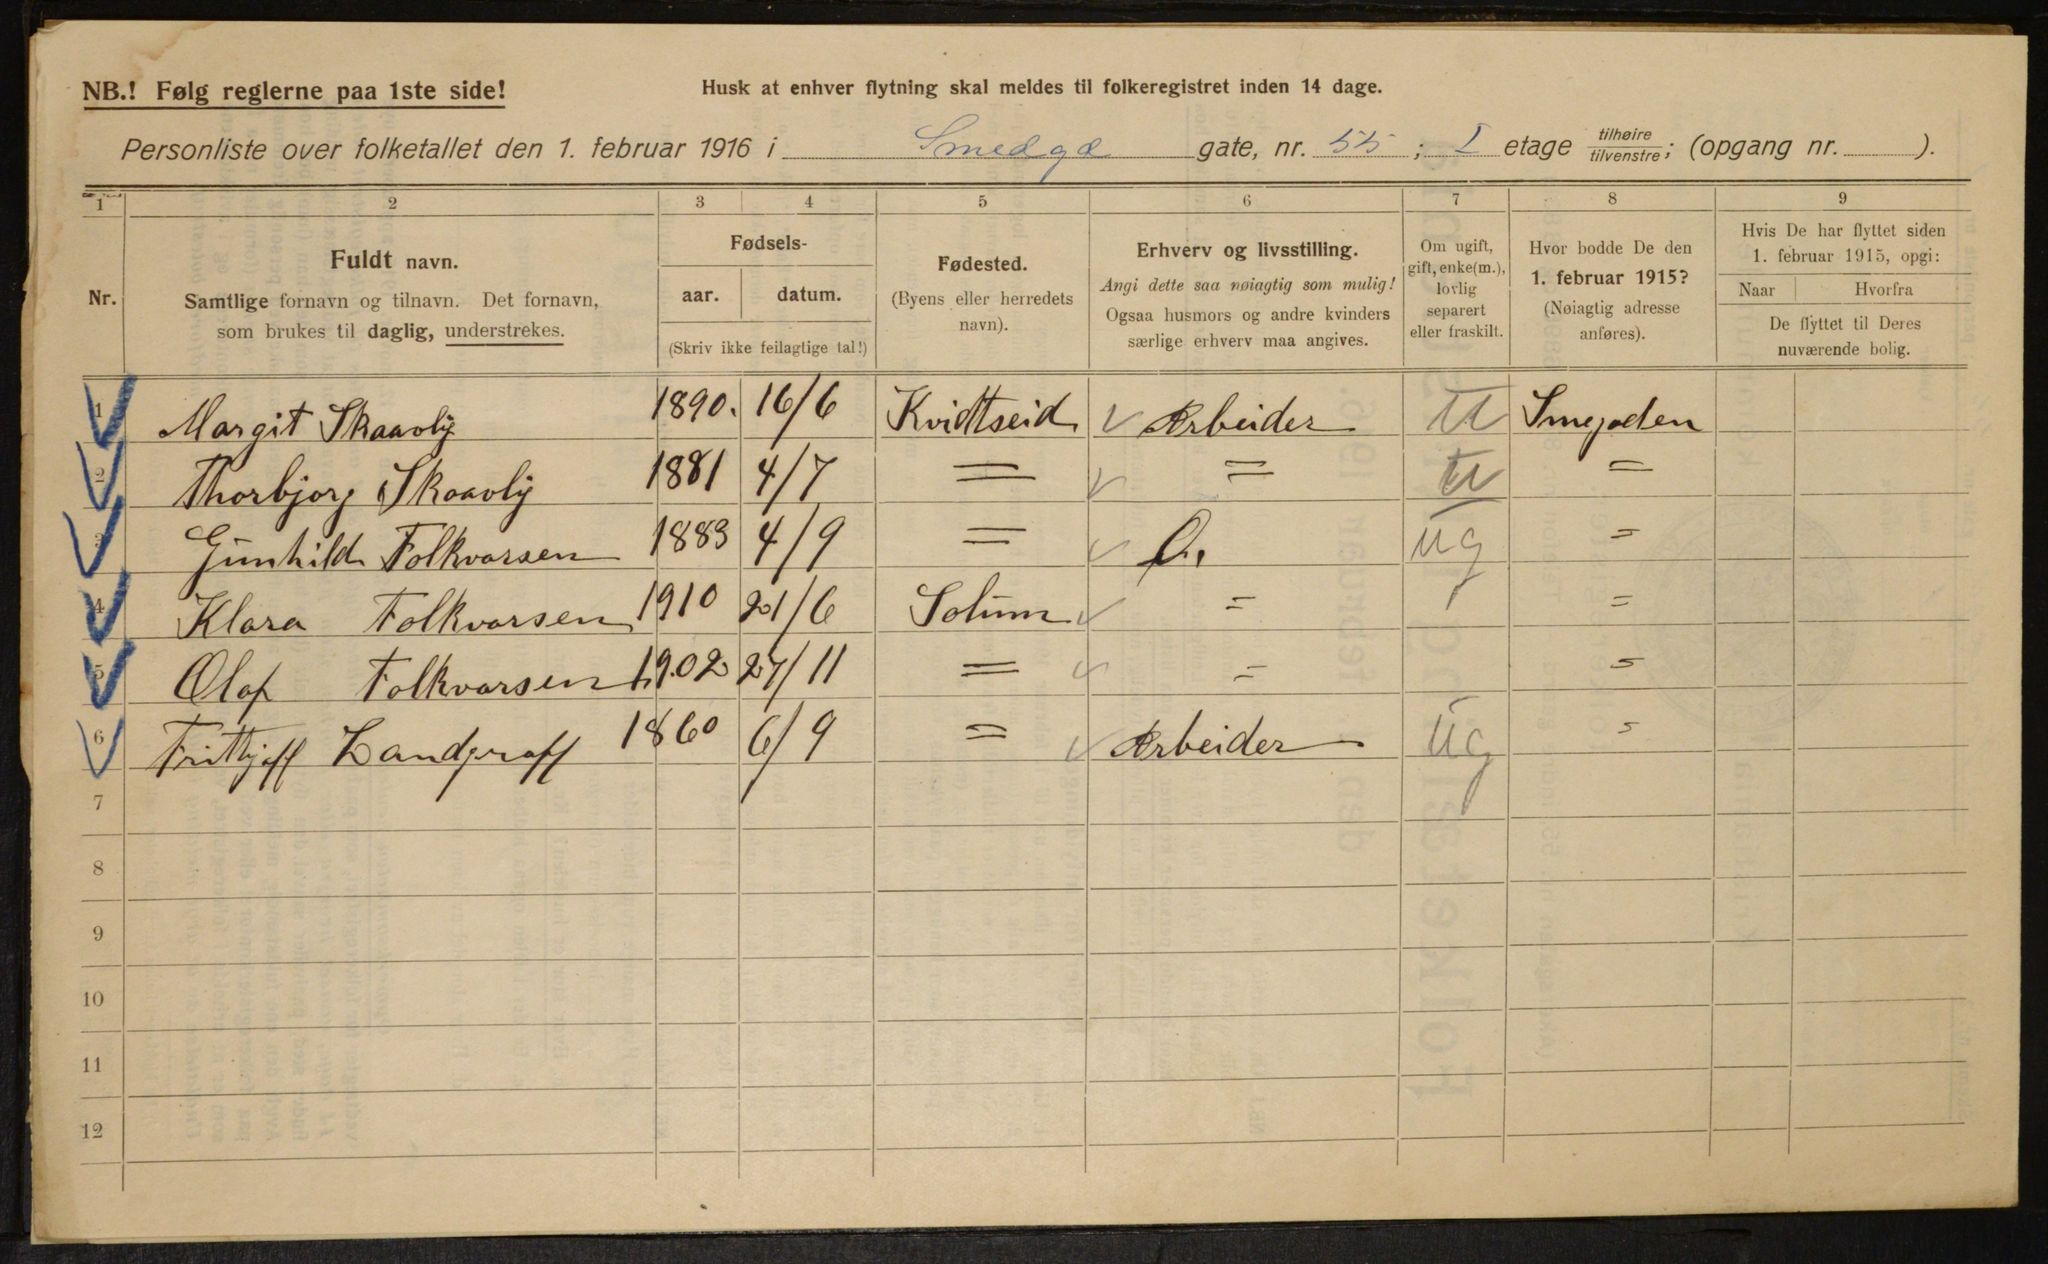 NB.! Følg reglerne paa 1ste side!
Husk at enhver flytning skal meldes til folkeregistret inden 14 dage.
Personliste over folketallet den 1. februar 1916 i Smedgd gate, nr. 55; I etage tilhøire/tilvenstre; (opgang nr. ).
1 2 3 4 5 6 7 8 9
Nr.
Fuldt navn.
Samtlige fornavn og tilnavn. Det fornavn,
som brukes til daglig, understrekes.
Fødsels-
aar. datum.
(Skriv ikke feilagtige tal!)
Fødested.
(Byens eller herredets
navn).
Erhverv og livsstilling.
Angi dette saa nøiagtig som mulig!
Ogsaa husmors og andre kvinders
særlige erhverv maa angives.
Om ugift,
gift, enke(m.),
lovlig
separert
eller fraskilt.
Hvor bodde De den
1. februar 1915?
(Nøiagtig adresse
anføres).
Hvis De har flyttet siden
1. februar 1915, opgi:
Naar Hvorfra
De flyttet til Deres
nuværende bolig.
1 Margit Skaavlij 1890. 16/6 Kvidtseid Arbeider U Smegaden
2 Thorbjorg Skaavlij 1881 4/7 = = U =
3 Gunhild Folkvarsen 1883 4/9 = ug =
4 Klara Folkvarsen 1910 21/6 Solum = =
5 Olaf Folkvarsen 1902 27/11 = = =
6 Frithjoff Landgraff 1860 6/9 = Arbeider ug =
7
8
9
10
11
12